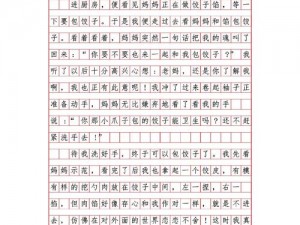 进厨房，便看见妈妈正在做饺子馅，等一
下要包饺子。于是我便走过去看妈妈和馅包饺
子。看着看着，妈妈突然一句话把我的魂叫了
回来：“你要不要也来一起和我包饺子？”我听
了以后十分高兴心想：老妈，还是你了解我
啊。我也正有此意呢！我冲了过来卷起袖子正
准备动手，妈妈无比嫌弃地看了看我的手
说：“你那小爪子包的饺子能卫生吗？还不赶
紧洗手去！”
待我洗好手，终于可以包饺子了。我先看
妈妈示范，我也拿起一个饺皮，有模
有样的挖勺肉放在饺子中间，左一捏，右一
掐，但肉馅好像存心和我作对，
不进去，仿佛在对外面的世界恋恋不舍！这时我真